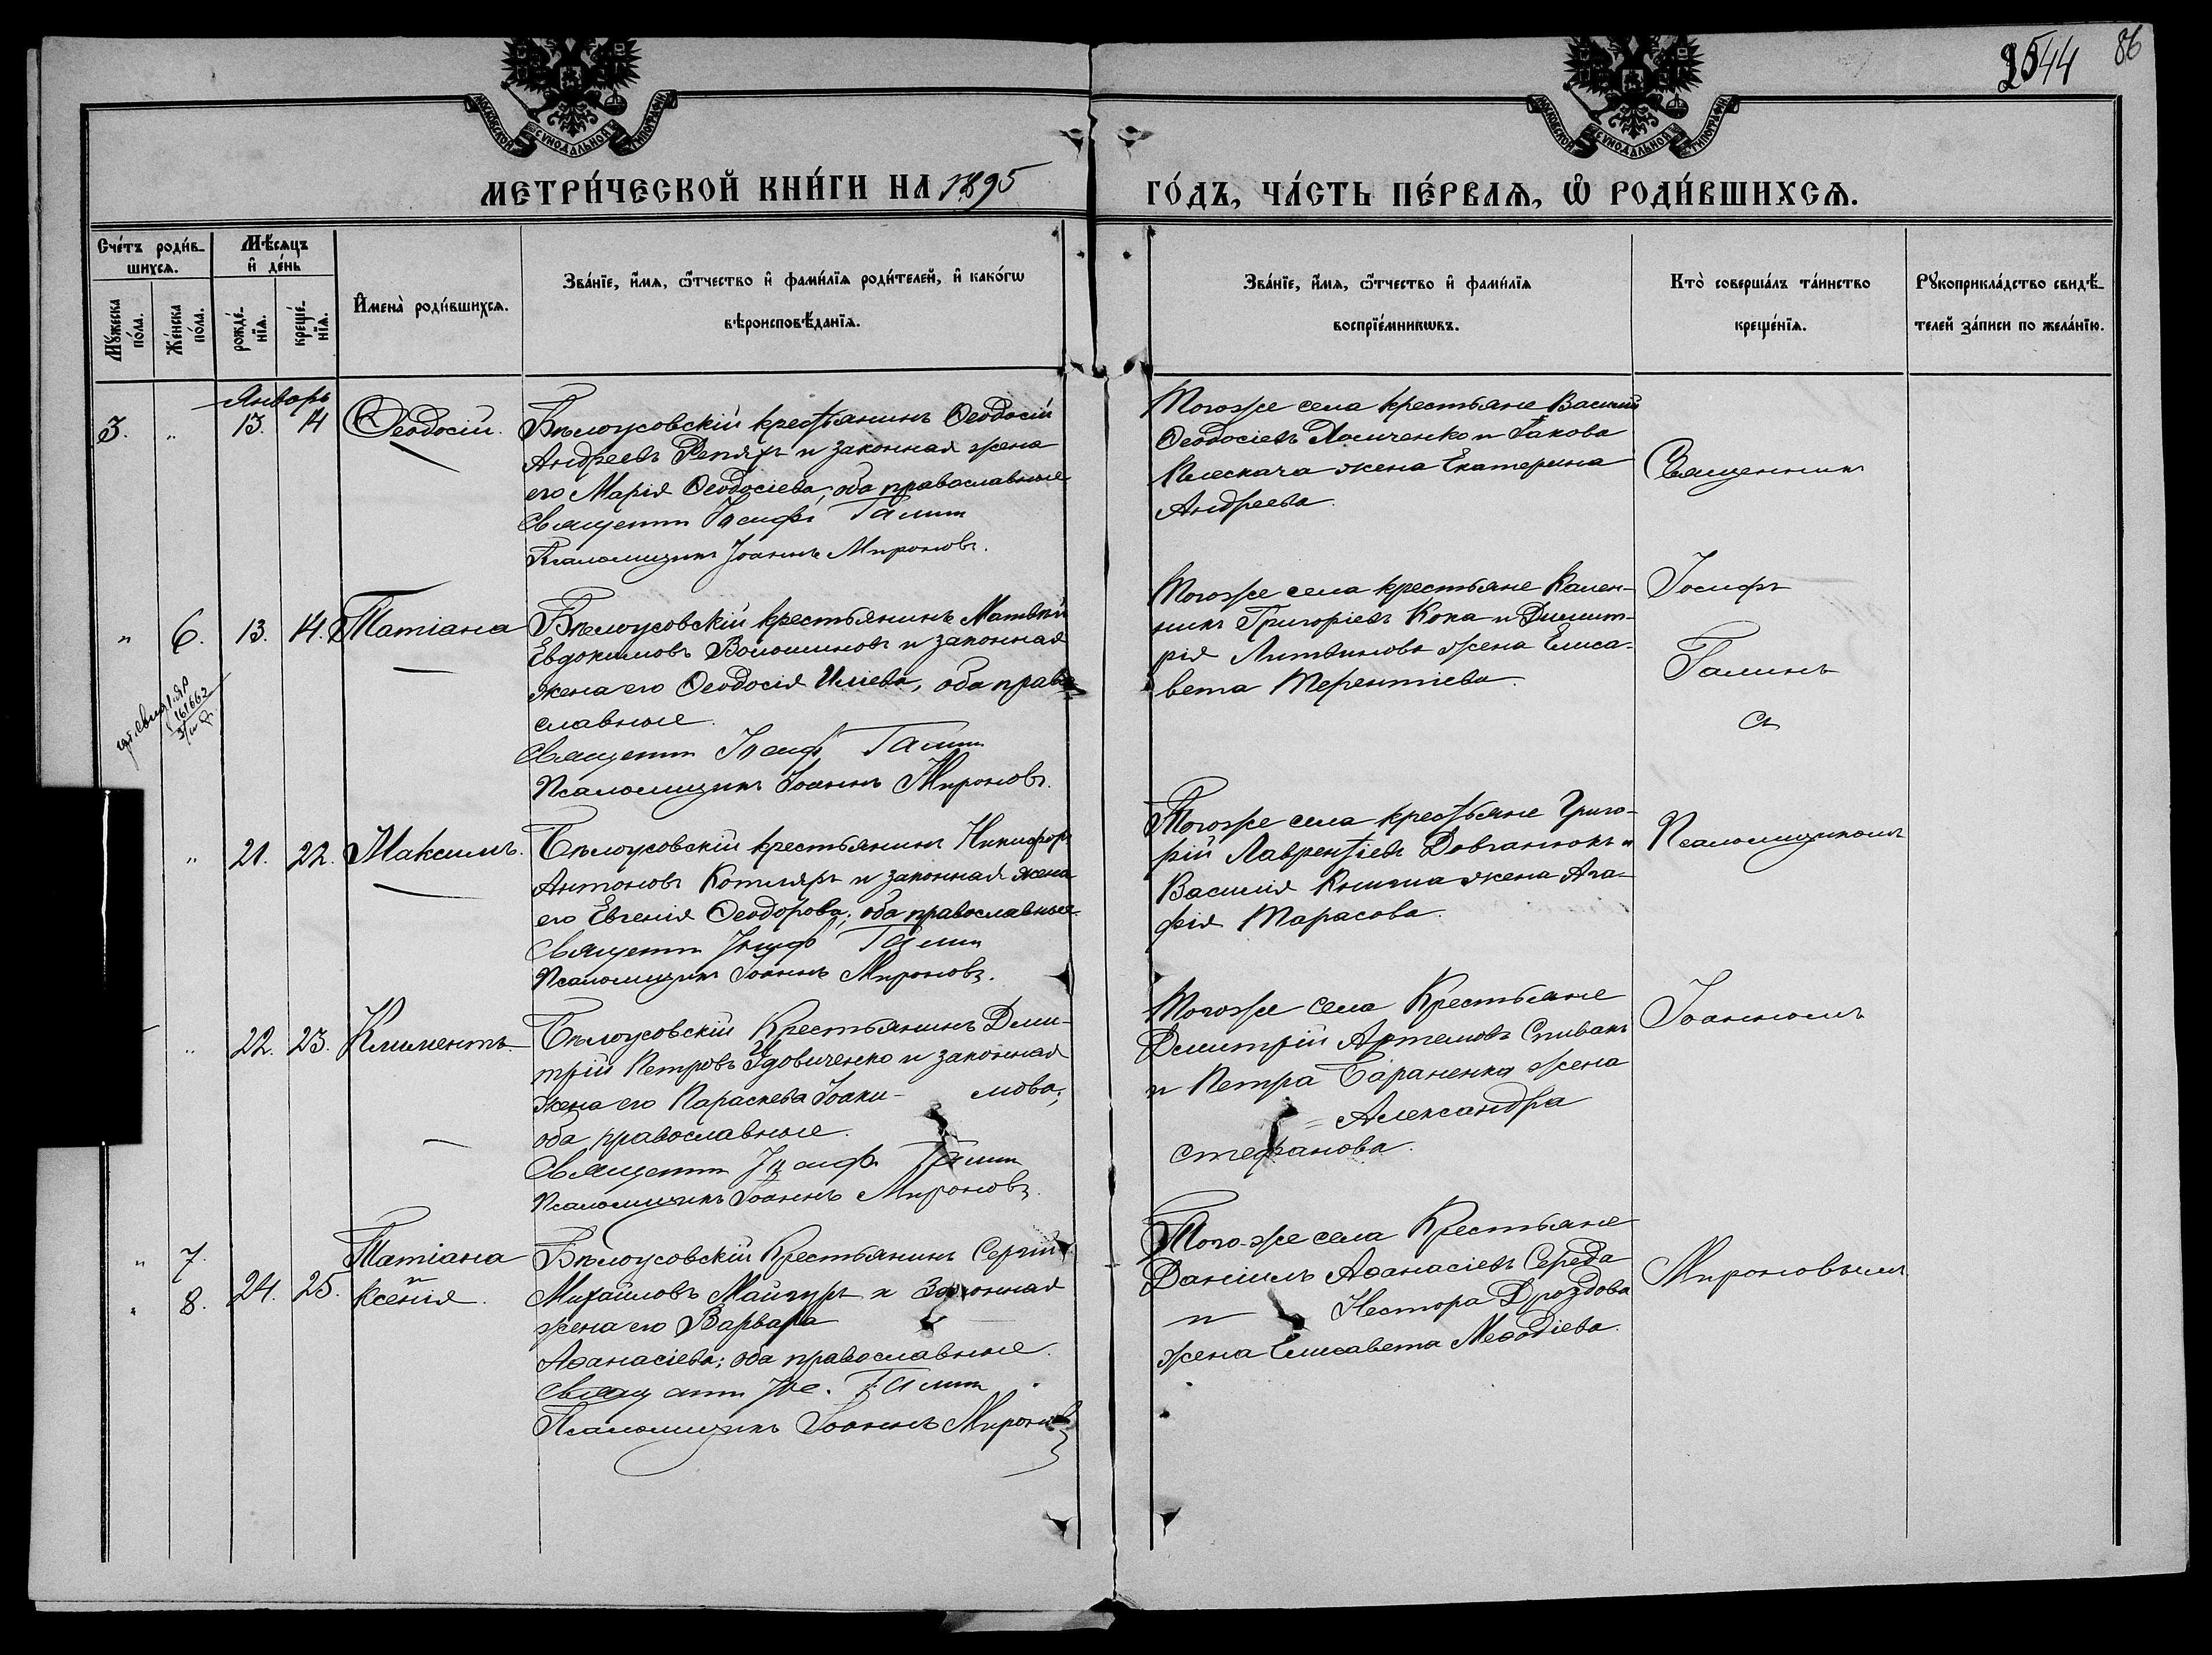 2544 86
МОСКОВСКОЙ СѴНОДАЛЬНОЙ ТИПОГРАФІИ
МОСКОВСКОЙ СѴНОДАЛЬНОЙ ТИПОГРАФІИ
МЕТРИ́ЧЕСКОЙ КНИ́ГИ НА 1895 ГО́ДЪ, ЧА́СТЬ ПЕ́РВАѦ, Ѽ РОДИ́ВШИХСѦ.
Сче́тъ роди́в-
шихсѧ.
Мꙋ́жеска
по́ла.
Же́нска
по́ла.
Мѣ́сѧцъ
и҆ де́нь
рожде́-
нїѧ.
креще́-
нїѧ.
И҆мена̀ роди́вшихсѧ.
Зва́нїе, и҆́мѧ, ѻ҆́тчество и҆ фами́лїѧ роди́телей, и҆ како́гѡ
вѣроисповѣ́данїѧ.
Зва́нїе, и҆́мѧ, ѻ҆́тчество и҆ фами́лїѧ
воспрїе́мникѡвъ.
Кто̀ соверша́лъ та́инство
креще́нїѧ.
Рꙋкоприкла́дство свидѣ́-
телей за́писи по жела́нїю.
Январь
3. " 13. 14 Ѳеодосій.
Бѣлоусовскій крестьянинъ Ѳеодосій
Андреевъ Репяхъ и законная жена
его Марія Ѳеодосіева, оба православные
Священник Іосиф Галин
Псаломщикъ Іоаннъ Мироновъ.
Тогоже села крестьяне Василій
Ѳеодосіевъ Хомченко и Іакова
Плескача жена Екатерина
Андреева.
Священникъ
" 6. 13. 14. Татіана
Бѣлоусовскій крестьянинъ Матвѣй
Евдокимовъ Волошиновъ и законная
жена его Ѳеодосія Иліева, оба право-
славные.
Священник Іосиф Галин
Псаломщикъ Іоаннъ Мироновъ.
Тогоже села крестьяне Кален-
никъ Григоріевъ Кока и Димит-
рія Литвинова жена Елиса-
вета Терентіева.
Іосифъ
Галинъ
съ
161662
" 21. 22. Максимъ.
Бѣлоусовскій крестьянинъ Никифоръ
Антоновъ Котляръ и законная жена
его Евгенія Ѳеодорова, оба православные.
Священник Іосиф Галин
Псаломщикъ Іоаннъ Мироновъ.
Тогоже села крестьяне Григо-
рій Лаврентіевъ Довганюкъ и
Василія Книгиа жена Ага-
фія Тарасова.
Псаломщикомъ
" 22. 23. Климентъ.
Бѣлоусовскій Крестьянинъ Дми-
трій Петровъ Удовиченко и законная
жена его Параскева Іоаки- мова;
оба православные.
Священник Іосиф Галин
Псаломщикъ Іоаннъ Мироновъ.
Тогоже села Крестьяне
Димитрій Артемовъ Спивакъ
и Петра Бараненка жена
= Александра
Стефанова.
Іоанномъ
" 7. Татіана
" 8. 24. 25. и Ксенія.
Бѣлоусовскій Крестьянинъ Сергій
Михайловъ Майгуръ и законная
жена его Варвара
Аѳанасіева; оба православные.
Священник Іос. Галин
Псаломщикъ Іоаннъ Мироновъ
Того-же села Крестьяне
Даніилъ Аѳанасіевъ Середа
и Нестора Дроздова
жена Елисавета Меѳодіева.
Мироновымъ